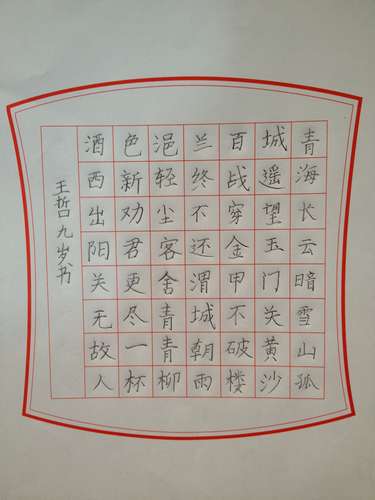 青海长云暗雪山孤
城遥望玉门关黄沙
百战穿金甲不破楼
兰终不还渭城朝雨
浥轻尘客舍青青柳
色新劝君更尽一杯
酒西出阳关无故人
王哲九岁书